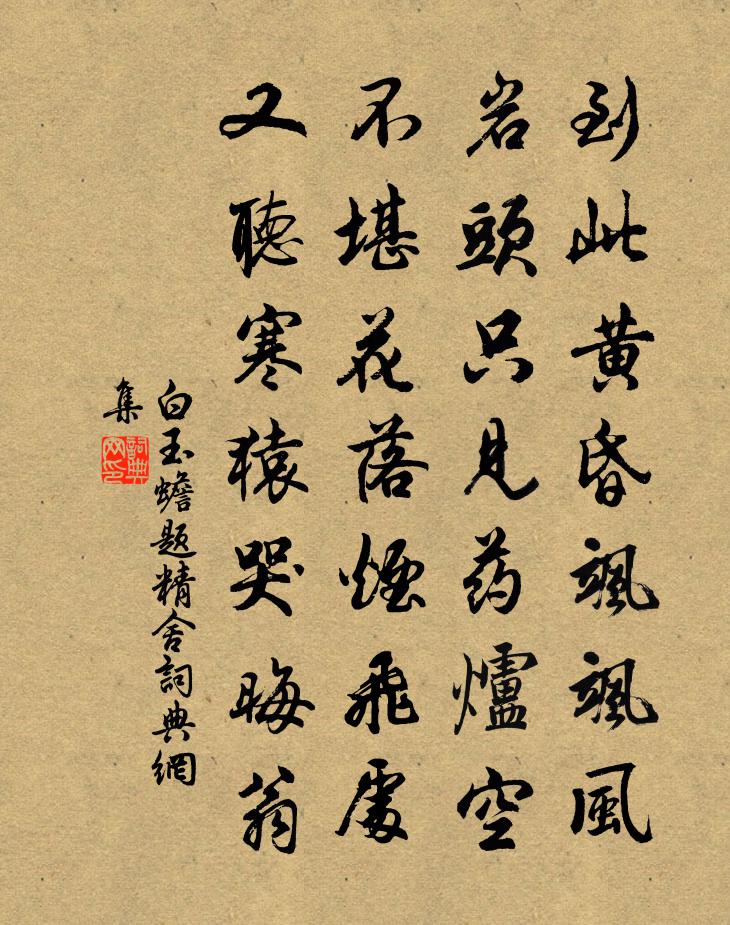 到此黄昏颯颯風
岩頭只見药爐空
不堪花落煙飛處
又聽寒猿哭晦翁
白玉蟾题精舍詞典網
集
詞典網印